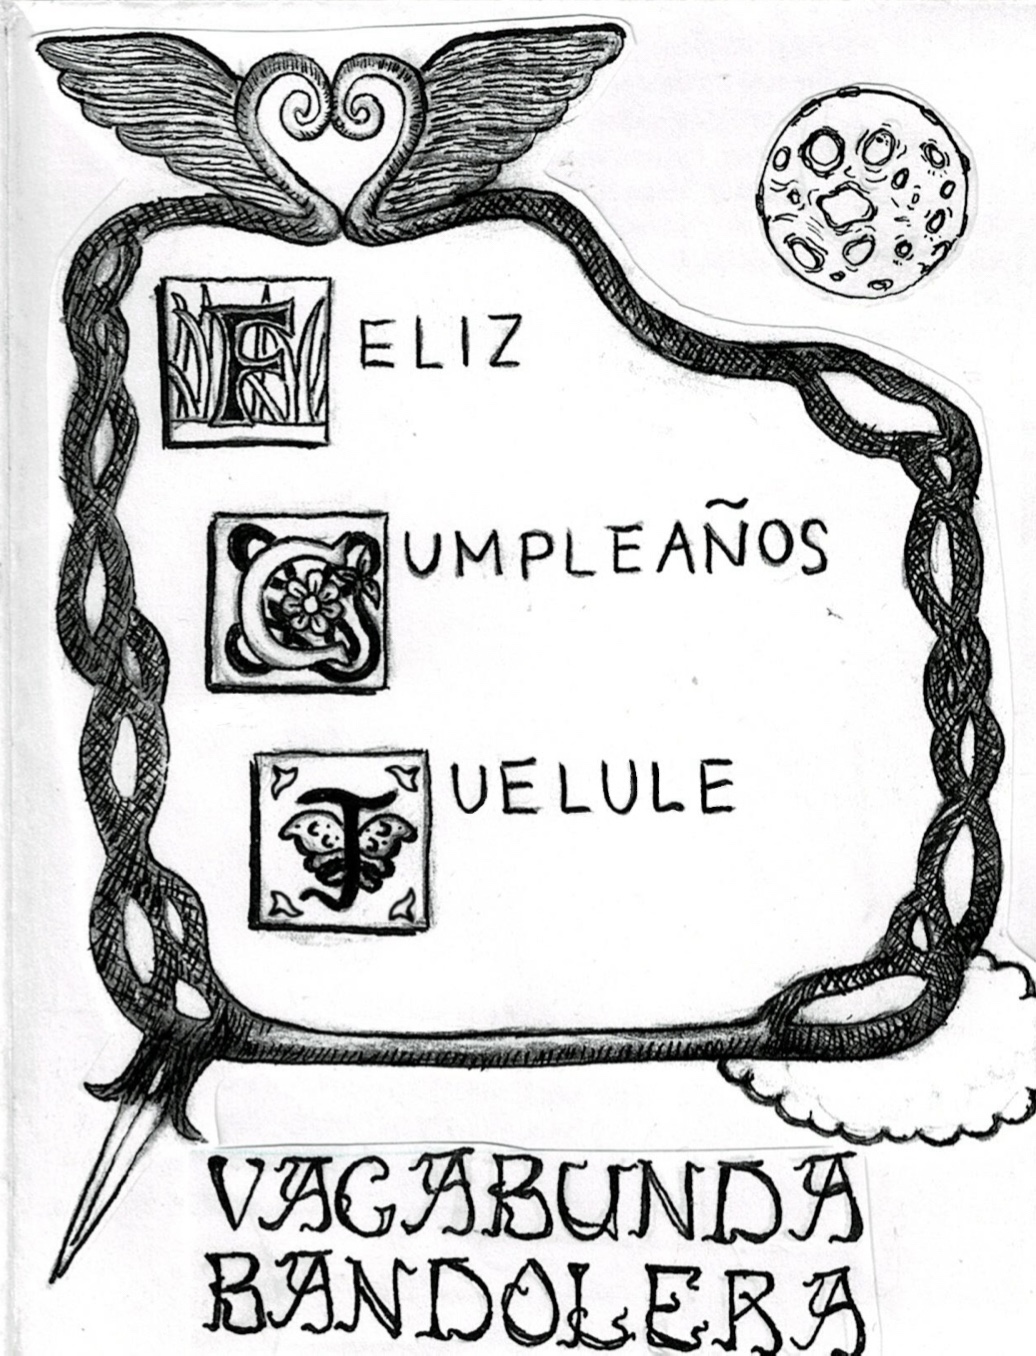 FELIZ
CUMPLEAÑOS
JUELULE
VAGABUNDA
BANDOLERA